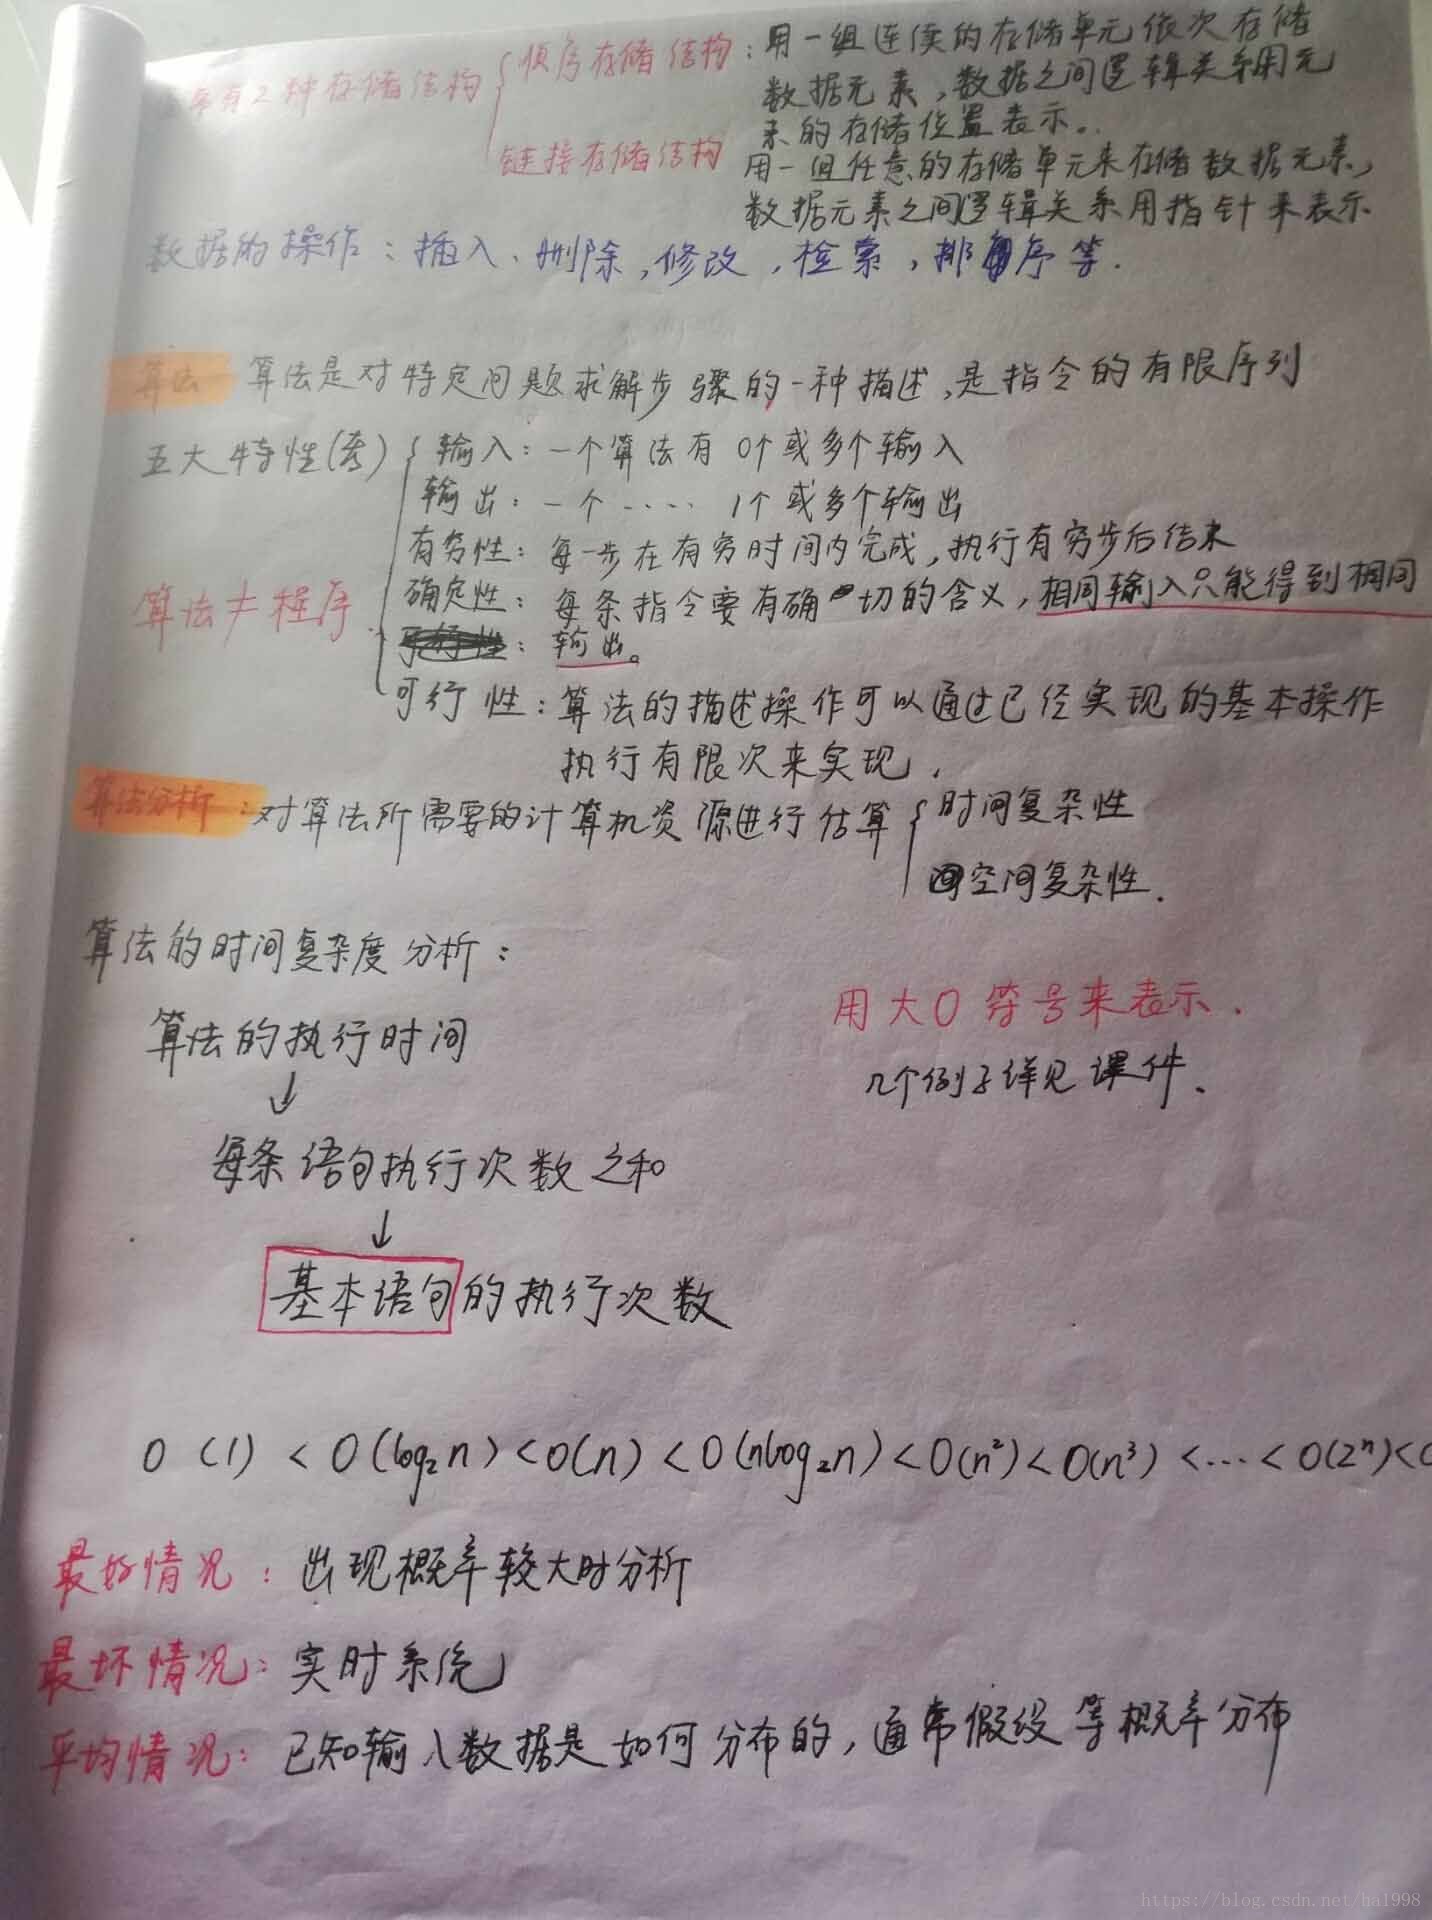 常有2种存储结构
顺序存储结构：用一组连续的存储单元依次存储
数据元素，数据之间逻辑关系用元
素的存储位置表示。
链接存储结构
用一组任意的存储单元来存储数据元素，
数据元素之间逻辑关系用指针来表示
数据的操作：插入、删除，修改，检索，排序等．
算法 算法是对特定问题求解步骤的一种描述，是指令的有限序列
五大特性(考) 输入：一个算法有0个或多个输入
输出：一个····· 1个或多个输出
有穷性：每一步在有穷时间内完成，执行有穷步后结束
算法≠程序
确定性：每条指令要有确切的含义，相同输入只能得到相同
输出。
可行性：算法的描述操作可以通过已经实现的基本操作
执行有限次来实现．
算法分析：对算法所需要的计算机资源进行估算 时间复杂性
空间复杂性．
算法的时间复杂度分析：
用大O符号来表示．
算法的执行时间
几个例子详见课件、
↓
每条语句执行次数之和
↓
基本语句的执行次数
O (1) < O(log₂n) < O(n) < O(nlog₂n) < O(n²) < O(n³) < … < O(2ⁿ) <
最好情况：出现概率较大时分析
最坏情况：实时系统
平均情况：已知输入数据是如何分布的，通常假设等概率分布
https://blog.csdn.net/ha1998